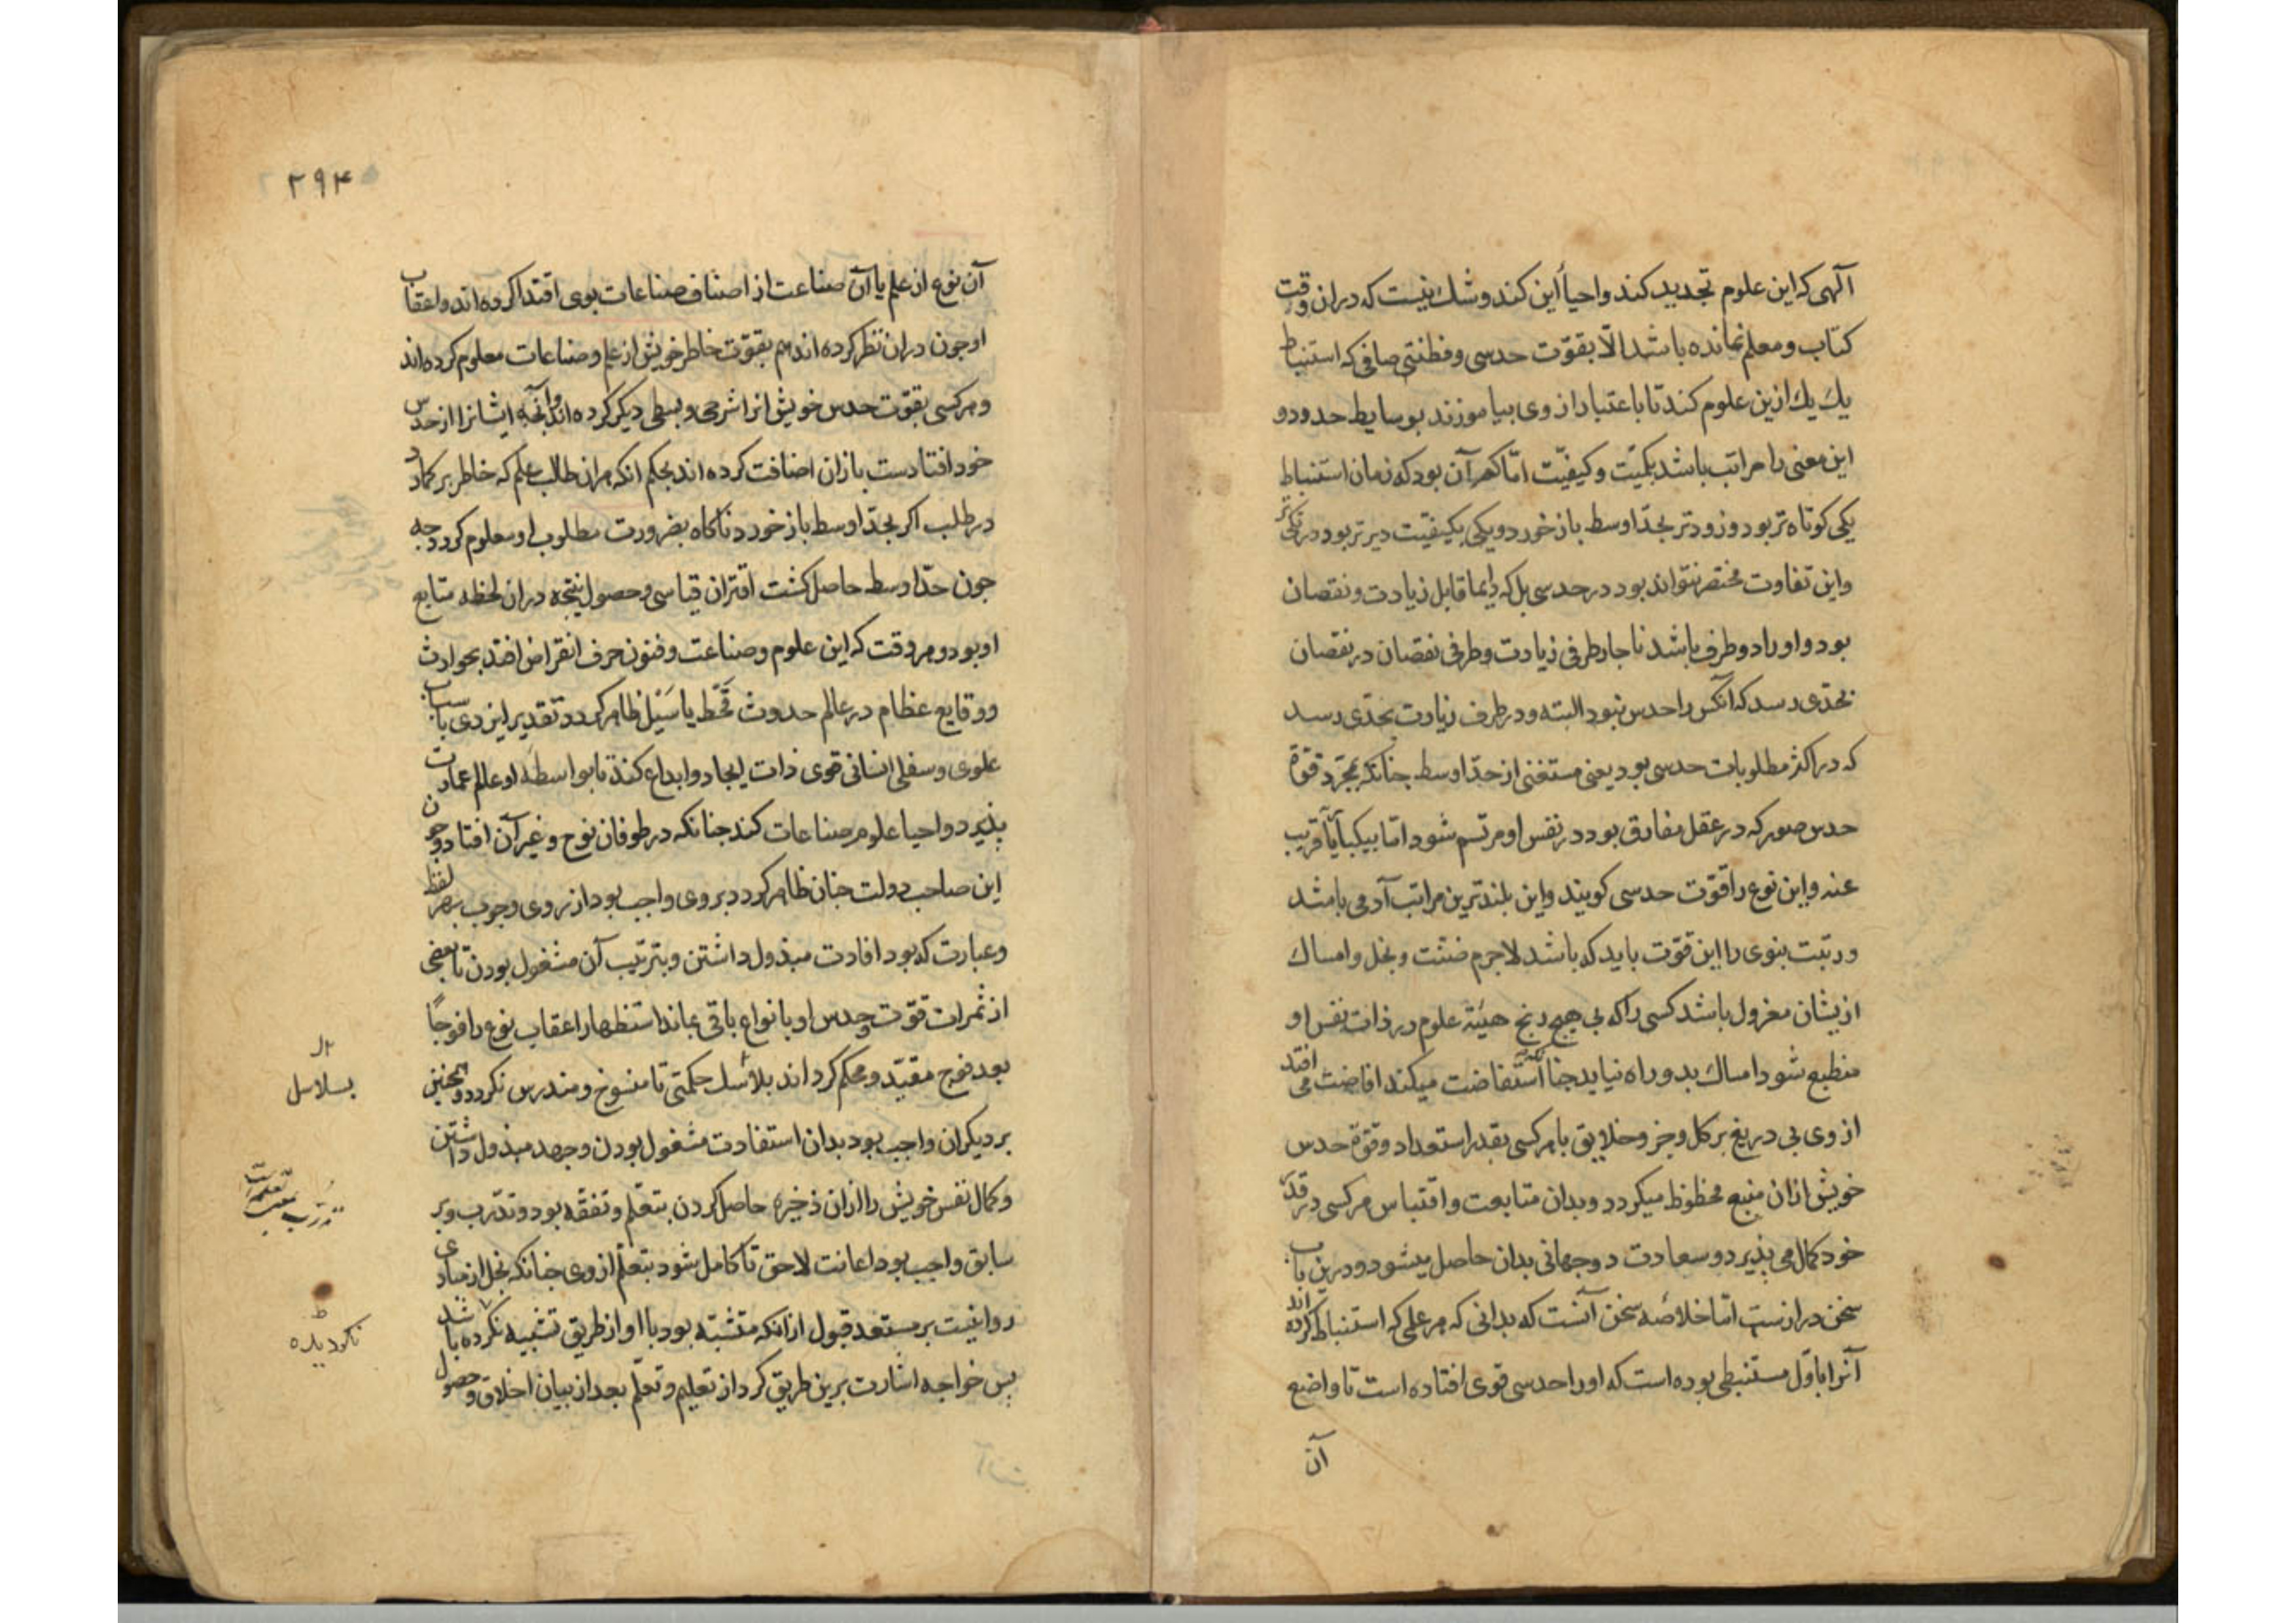 آلهی که این علوم تجدید کند و احیأ این کند و شك نیست که دران وقت
کتاب و معلم نمانده باشد الّا بقوّت حدسی و فطنتی صافی که استنباط
یك یك ازین علوم کند تا باعتبار از وی بیاموزند بوسایط حدود و
این معنی را مراتب باشد بکمیّت و کیفیّت امّا کمّ آن بود که زمان استنباط
یکی کوتاه تر بود و زودتر بحدّ اوسط باز خورد و یکی بکیفیّت دیرتر بود
و این تفاوت مختصر نتواند بود در حدسی بل که دایما قابل زیادت و نقصان
بود و او را دو طرف باشد ناجار طرفی زیادت و طرفی نقصان در نقصان
بحدّی رسد که آنکس را حدس نبود البته و در طرف زیادت بحدّی رسد
که در اکثر مطلوبات حدسی بود یعنی مستغنی از حدّ اوسط جنانکه بمجرّد قوّة
حدس صور که در عقل مفارق بود در نفس او مرتسم شود امّا بیکبار یا قریب
عنه و این نوع را قوّت حدسی کویند و این بلندترین مراتب آدمی باشد
و رتبت نبوی را این قوّت باید که باشد لاجرم ضنّت و بخل و امساك
ازیشان معزول باشد کسی را که بی هیج رنج هیئة علوم در ذات نفس او
منطبع شود امساك بدو راه نیاید جنانکه استفاضت میکند افاضت می افتد
از وی بی دریغ بر کل و جز و خلایق با هر کسی بقدر استعداد و قوّة حدس
خویش ازان منبع محظوظ میکردد و بدان متابعت و اقتباس هر کسی در قدر
خود کمال می پذیرد و سعادت دوجهانی بدان حاصل میشود و درین باب
سخن درازست امّا خلاصه سخن آنست که بدانی که هر علمی که استنباط کرده اند
آنرا باوّل مستنبطی بوده است که او را حدسی قوی افتاده است تا واضع
آن
۲۹۴
آن نوع از علم یا آن صناعت از اصناف صناعات بوی اقتدا کرده اند و اعقاب
او جون دران نظر کرده اند هم بقوّت خاطر خویش از علم و صناعات معلوم کرده اند
و هر کسی بقوّت حدس خویش انرا شرحی و بسطی دیکر کرده اند و آنچه ایشانرا از حدس
خود افتادست بازان اضافت کرده اند بحکم انکه هران طالب علم که خاطر برکمارد
در طلب اکر بحدّ اوسط باز خورد ناکاه بضرورت مطلوب او معلوم کردد جه
جون حدّ اوسط حاصل کشت اقتران قیاسی و حصول نتیجه دران لحظه متابع
او بود و هر وقت که این علوم و صناعت و فنون حرف انقراض افتد بحوادث
و وقایع عظام در عالم حدوث قحط یا سیل ظاهر کردد تقدیر ایزدی باسباب
علوی و سفلی انسانی قوی ذات ایجاد و ابداع کند تا بواسطه او عالم عمارت
پذیرد و احیا علوم و صناعات کند جنانکه در طوفان نوح و غیر آن افتاد و جون
این صاحب دولت جنان ظاهر کردد بروی واجب بود از روی وجوب بهر لفظ
و عبارت که بود افادت مبذول داشتن و بترتیب آن مشغول بودن تا بعضی
از ثمرات قوّت حدس او بانواع باقی بماند استظهار اعقاب نوع را فوجاً
بعد فوج مقیّد و محکم کرداند بلاسل حکمتی تا منسوخ و مندرس نکردد و همجنین
بر دیکران واجب بود بدان استفادت مشغول بودن و جهد مبذول داشتن
و کمال نفس خویش را ازان ذخیره حاصل کردن بتعلّم و تفقّه بود و تدرّب و بر
سابق واجب بود اعانت لاحق تا کامل شود بتعلّم از وی جنانکه بخل از مبادی
روا نیست بر مستعد قبول ازانکه متشبّه بود با او از طریق تشبیه نکرده باشد
پس خواجه اشارت برین طریق کرد از تعلیم و تعلّم بعد از بیان اخلاق و حصول
بسلاسل